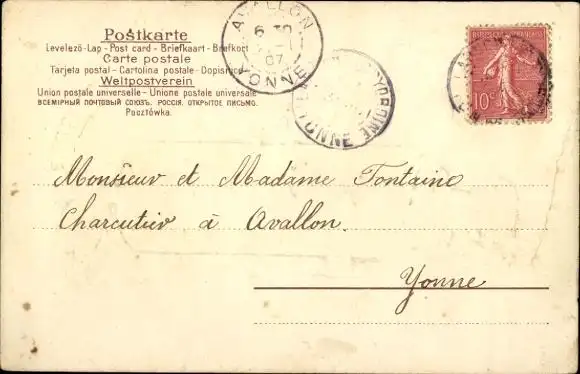 Postkarte
Levelező-Lap - Post card - Briefkaart - Brefkort
Carte postale
Tarjeta postal - Cartolina postale - Dopisnice
Weltpostverein
Union postale universelle - Unione postale universale
ВСЕМІРНЫЙ ПОЧТОВЫЙ СОЮЗЪ. РОССІЯ. ОТКРЫТОЕ ПИСЬМО.
Pocztówka.
AVALLON
6 30
07
YONNE
YONNE
10c
Monsieur et Madame Fontaine
Charcutier à Avallon.
Yonne